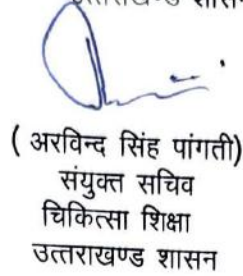 ( अरविन्द सिंह पांगती)
संयुक्त सचिव
चिकित्सा शिक्षा
उत्तराखण्ड शासन